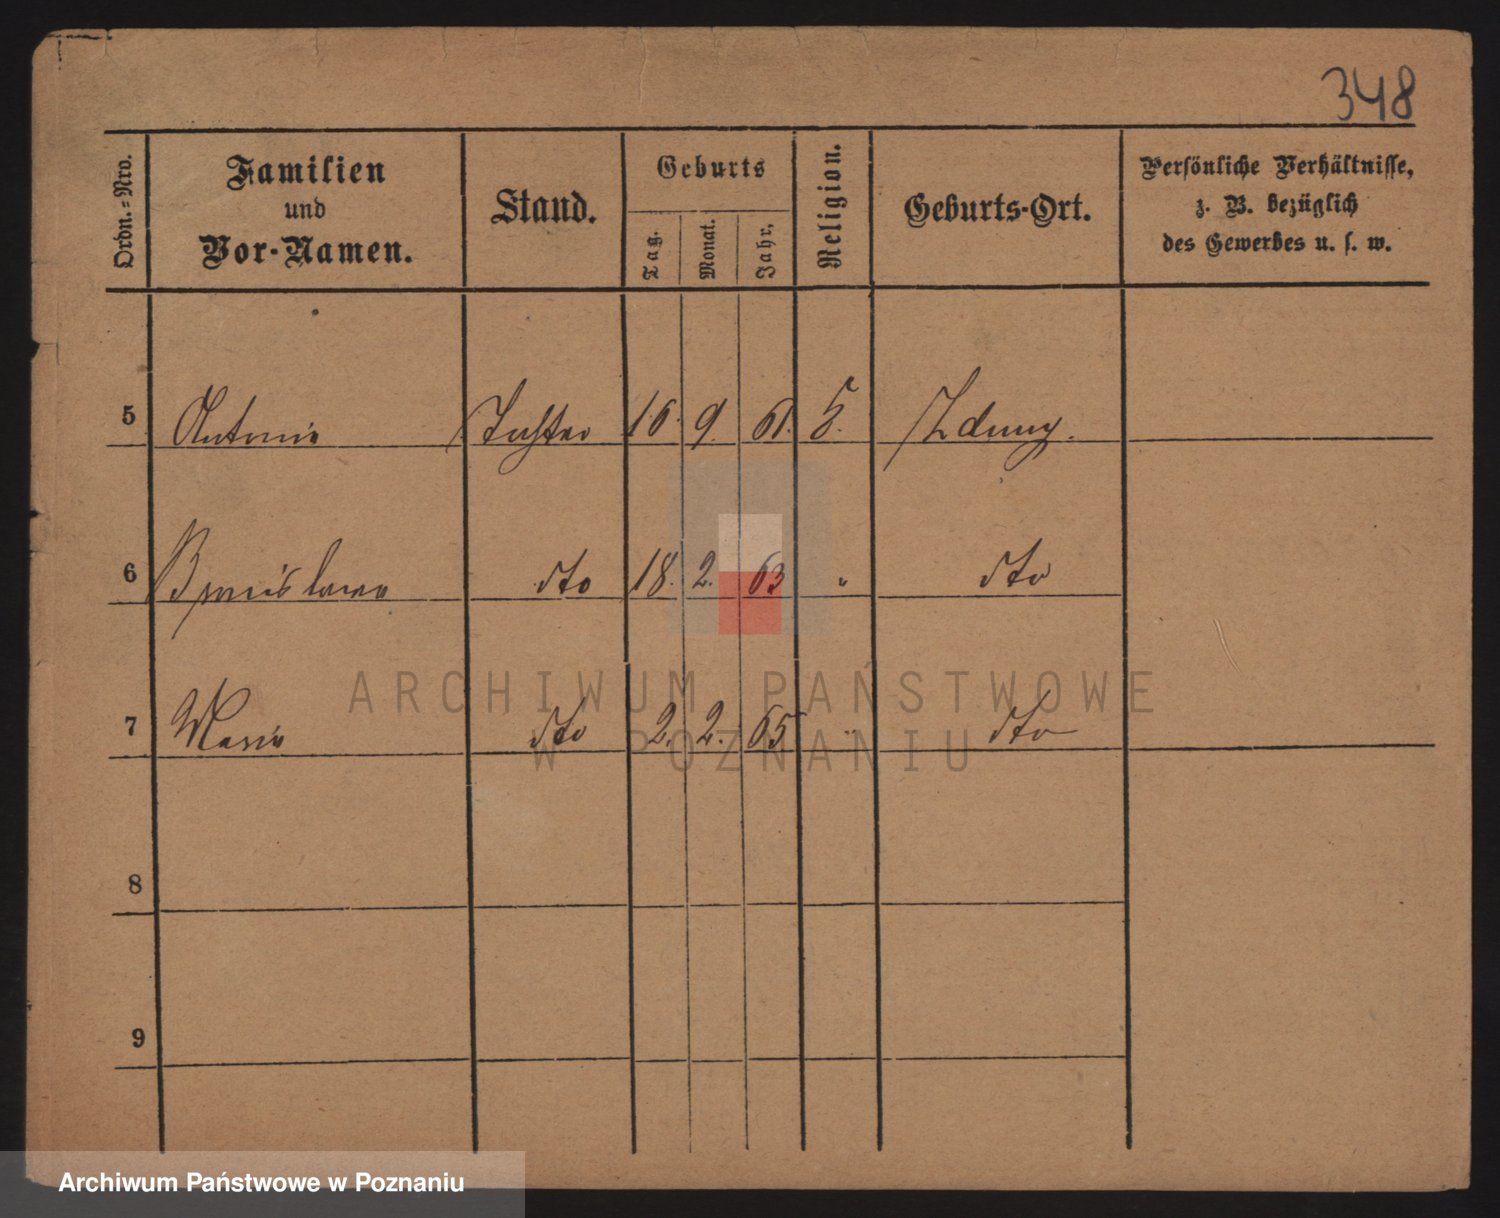 348
Ordn.=Nro.
Familien
und
Vor-Namen.
Stand.
Geburts
Tag.
Monat.
Jahr,
Religion.
Geburts-Ort.
Persönliche Verhältnisse,
z. B. bezüglich
des Gewerbes u. s. w.
5 Antonie Tochter 16. 9. 61. Zduny.
6 Bronislawa dto 18. 2. 63 " dto
7 Marie dto 2. 2. 65 " dto
8
9
ARCHIWUM PAŃSTWOWE
W POZNANIU
Archiwum Państwowe w Poznaniu